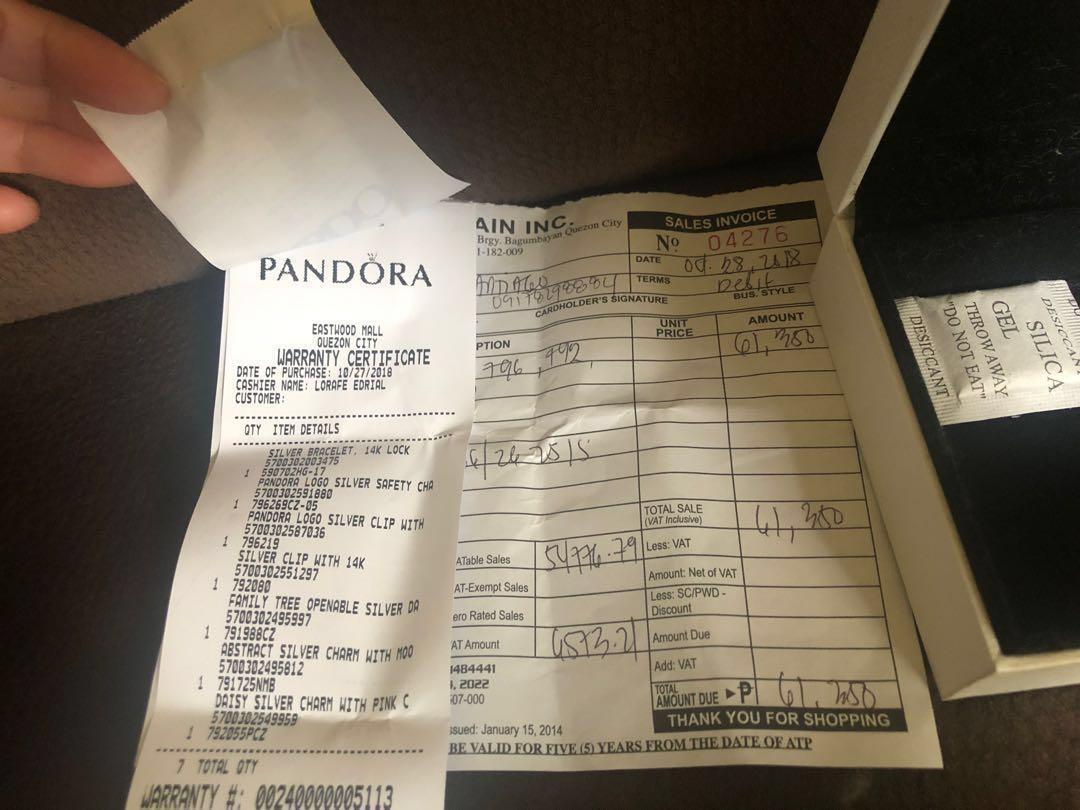 PANDORA
EASTWOOD MALL
QUEZON CITY
WARRANTY CERTIFICATE
DATE OF PURCHASE: 10/27/2018
CASHIER NAME: LORAFE EDRIAL
CUSTOMER:
QTY ITEM DETAILS
SILVER BRACELET, 14K LOCK
5700302003475
1 590702HG-17
PANDORA LOGO SILVER SAFETY CHA
5700302591880
1 796269CZ-05
PANDORA LOGO SILVER CLIP WITH
5700302587036
1 796219
SILVER CLIP WITH 14K
5700302551297
1 792080
FAMILY TREE OPENABLE SILVER DA
5700302495997
1 791988CZ
ABSTRACT SILVER CHARM WITH MOO
5700302495812
1 791725NMB
DAISY SILVER CHARM WITH PINK C
5700302549959
1 792055PCZ
7 TOTAL QTY
WARRANTY #: 00240000005113
AIN INC.
Brgy. Bagumbayan Quezon City
1-182-009
SALES INVOICE
No 04276
DATE 28, 2018
TERMS Debit
BUS. STYLE
CARDHOLDER'S SIGNATURE
PTION
UNIT PRICE
AMOUNT
796, 992,
61,350
TOTAL SALE
(VAT Inclusive)
61,350
ATable Sales 54776.79
Less: VAT
AT-Exempt Sales
Amount: Net of VAT
ero Rated Sales
Less: SC/PWD - Discount
AT Amount 6573.21
Amount Due
Add: VAT
TOTAL AMOUNT DUE ►₱ 61,350
THANK YOU FOR SHOPPING
1484441
, 2022
07-000
ssued: January 15, 2014
BE VALID FOR FIVE (5) YEARS FROM THE DATE OF ATP
DESICCANT
"DO NOT EAT"
THROW AWAY
GEL
SILICA